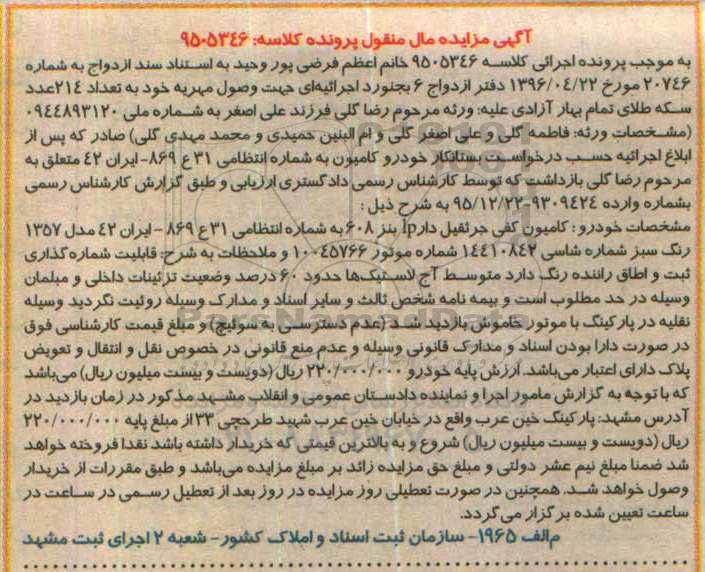 آگهی مزایده مال منقول پرونده کلاسه: ۹۵۰۵۳۴۶
به موجب پرونده اجرائی کلاسه ۹۵۰۵۳۴۶ خانم اعظم فرضی پور وحید به استناد سند ازدواج به شماره
۲۰۷۴۶ مورخ ۱۳۹۶/۰۴/۲۲ دفتر ازدواج ۶ بجنورد اجرائیه‌ای جهت وصول مهریه خود به تعداد ۲۱۴عدد
سکه طلای تمام بهار آزادی علیه: ورثه مرحوم رضا گلی فرزند علی اصغر به شماره ملی ۰۹۴۴۸۹۳۱۲۰
(مشخصات ورثه: فاطمه گلی و علی اصغر گلی و ام البنین حمیدی و محمد مهدی گلی) صادر که پس از
ابلاغ اجرائیه حسب درخواست بستانکار خودرو کامیون به شماره انتظامی ۳۱ع ۸۶۹- ایران ۴۲ متعلق به
مرحوم رضا گلی بازداشت که توسط کارشناس رسمی دادگستری ارزیابی و طبق گزارش کارشناس رسمی
بشماره وارده ۹۳۰۹۴۲۴-۹۵/۱۲/۲۲ به شرح ذیل :
مشخصات خودرو : کامیون کفی جرثقیل دارlp بنز ۶۰۸ به شماره انتظامی ۳۱ع ۸۶۹ - ایران ۴۲ مدل ۱۳۵۷
رنگ سبز شماره شاسی ۱۴۴۱۰۸۴۲ شماره موتور ۱۰۰۴۵۷۶۶ و ملاحظات به شرح: قابلیت شماره گذاری
ثبت و اطاق راننده رنگ دارد متوسط آج لاستیک‌ها حدود ۶۰ درصد وضعیت تزئینات داخلی و مبلمان
وسیله در حد مطلوب است و بیمه نامه شخص ثالث و سایر اسناد و مدارک وسیله روئیت نگردید وسیله
نقلیه در پارکینگ با موتور خاموش بازدید شد (عدم دسترسی به سوئیچ) و مبلغ قیمت کارشناسی فوق
در صورت دارا بودن اسناد و مدارک قانونی وسیله و عدم منع قانونی در خصوص نقل و انتقال و تعویض
پلاک دارای اعتبار می‌باشد. ارزش پایه خودرو ۲۲۰/۰۰۰/۰۰۰ ریال (دویست و بیست میلیون ریال) می‌باشد
که با توجه به گزارش مامور اجرا و نماینده دادستان عمومی و انقلاب مشهد مذکور در زمان بازدید در
آدرس مشهد: پارکینگ خین عرب واقع در خیابان خین عرب شهید طرحچی ۳۳ از مبلغ پایه ۲۲۰/۰۰۰/۰۰۰
ریال (دویست و بیست میلیون ریال) شروع و به بالاترین قیمتی که خریدار داشته باشد نقدا فروخته خواهد
شد ضمنا مبلغ نیم عشر دولتی و مبلغ حق مزایده زائد بر مبلغ مزایده می‌باشد و طبق مقررات از خریدار
وصول خواهد شد. همچنین در صورت تعطیلی روز مزایده در روز بعد از تعطیل رسمی در ساعت در
ساعت تعیین شده برگزار می گردد.
م‌الف ۱۹۶۵- سازمان ثبت اسناد و املاک کشور- شعبه ۲ اجرای ثبت مشهد
ParsNamadData